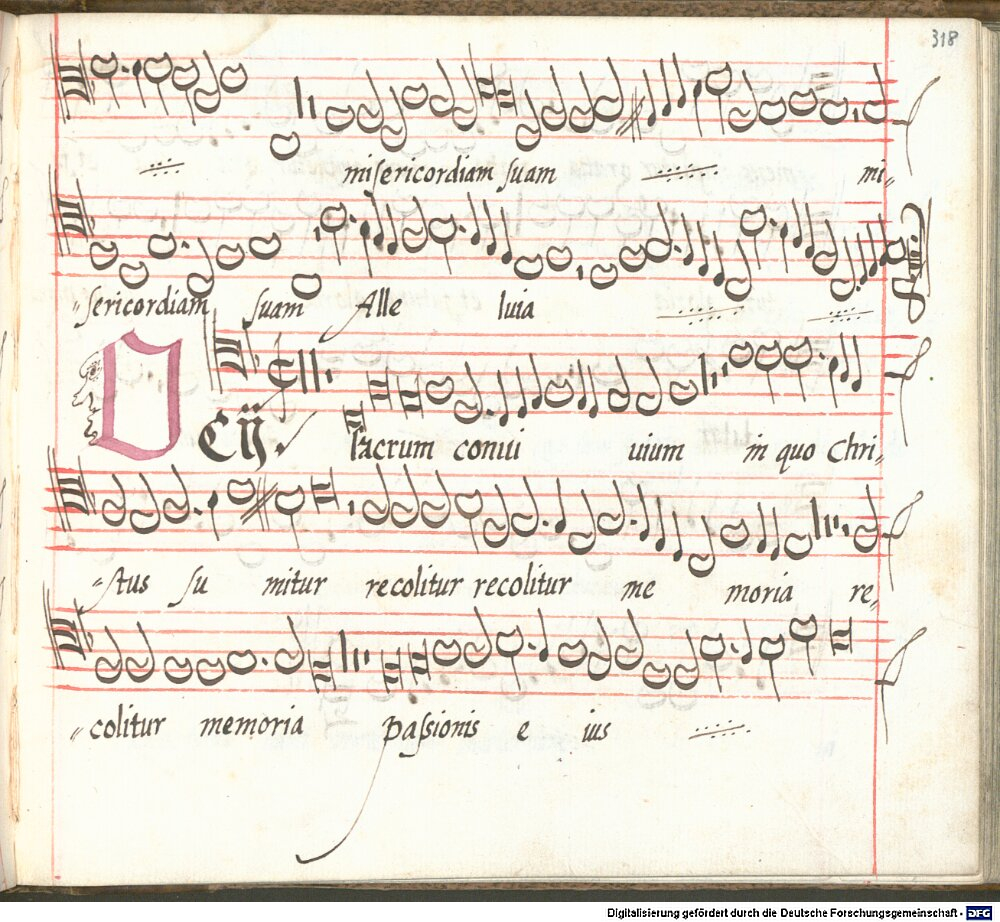 318
misericordiam suam mi„
„sericordiam suam Alle luia
O
Cij. sacrum conui uium in quo Chri„
„stus su mitur recolitur recolitur me moria re„
„colitur memoria passionis e ius
Digitalisierung gefördert durch die Deutsche Forschungsgemeinschaft - DFG